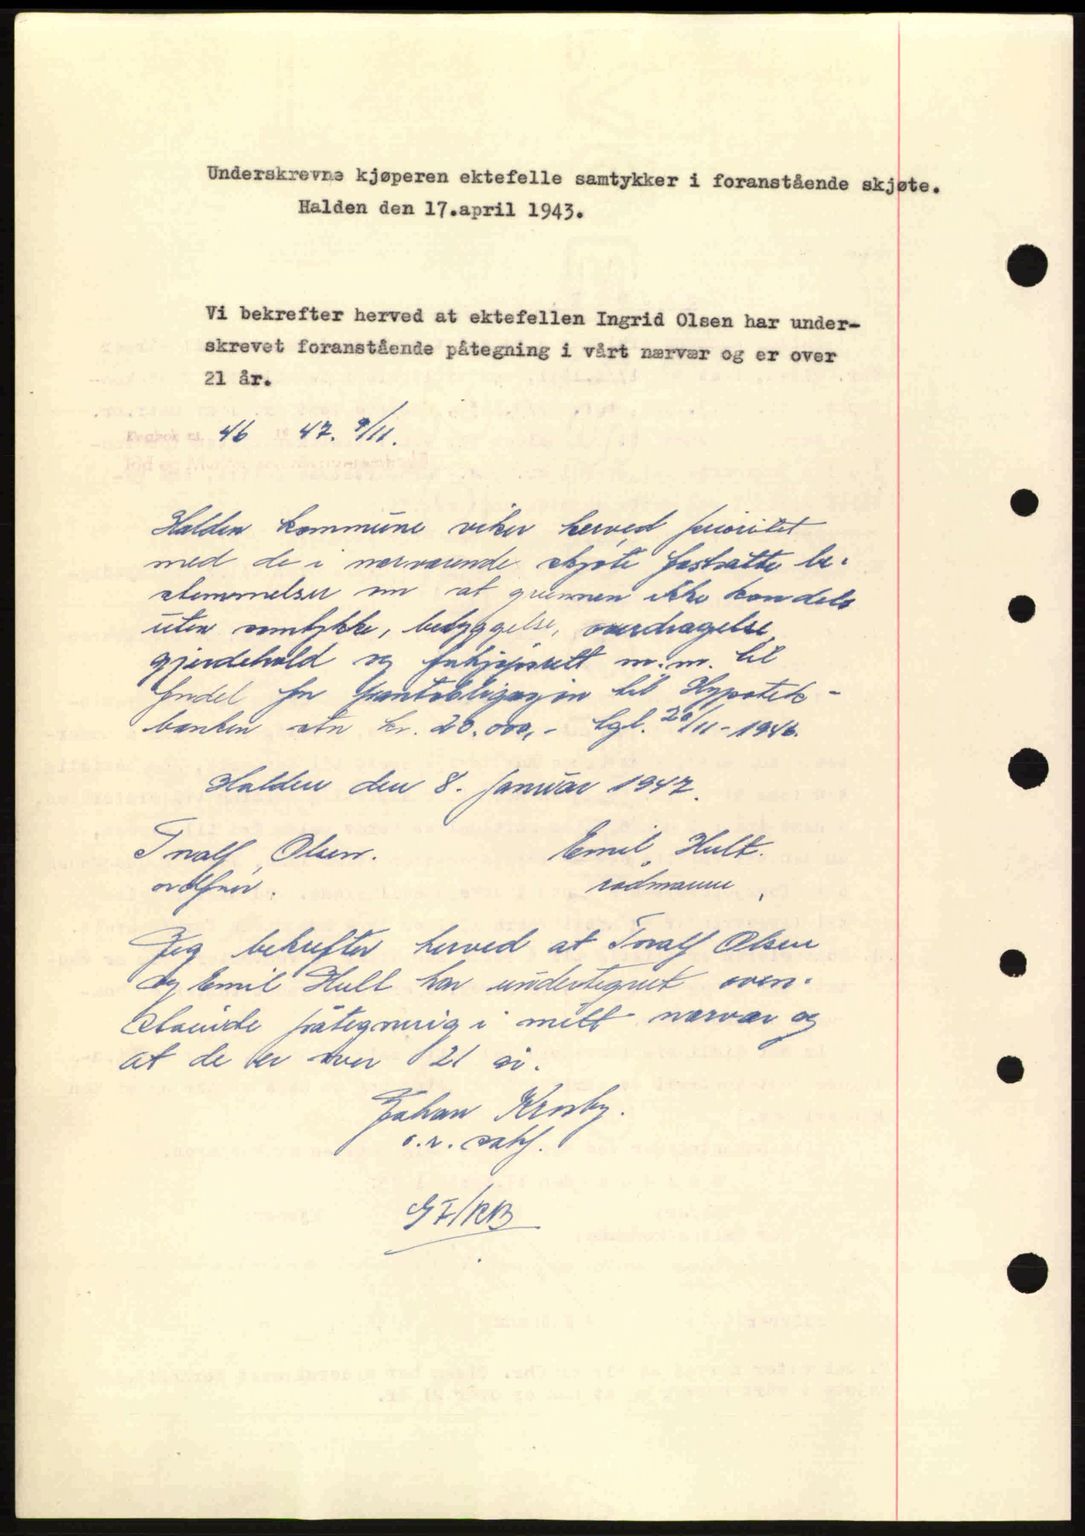 Underskrevne kjøperen ektefelle samtykker i foranstående skjøte.
Halden den 17.april 1943.
Vi bekrefter herved at ektefellen Ingrid Olsen har under-
skrevet foranstående påtegning i vårt nærvær og er over
21 år.
Dagbok nr. 46 1947. 9/11.
Halden kommune viker herved prioritet
med de i nærværende skjøte fastsatte be-
stemmelser om at grunnen ikke kan deles
uten samtykke, bebyggelse, overdragelse,
gjerdehold og forkjøpsrett m.m. til
fordel for pantobligasjon til Hypotek-
banken stor kr. 20.000,- tgl. 26/11-1946.
Halden den 8. januar 1947.
Toralf Olsen. Emil Hult.
ordfører. rådmann.
Jeg bekrefter herved at Toralf Olsen
og Emil Hult har undertegnet oven-
stående påtegning i mitt nærvær og
at de er over 21 år.
Johan Krosby.
o.r. sakf.
GF/RB